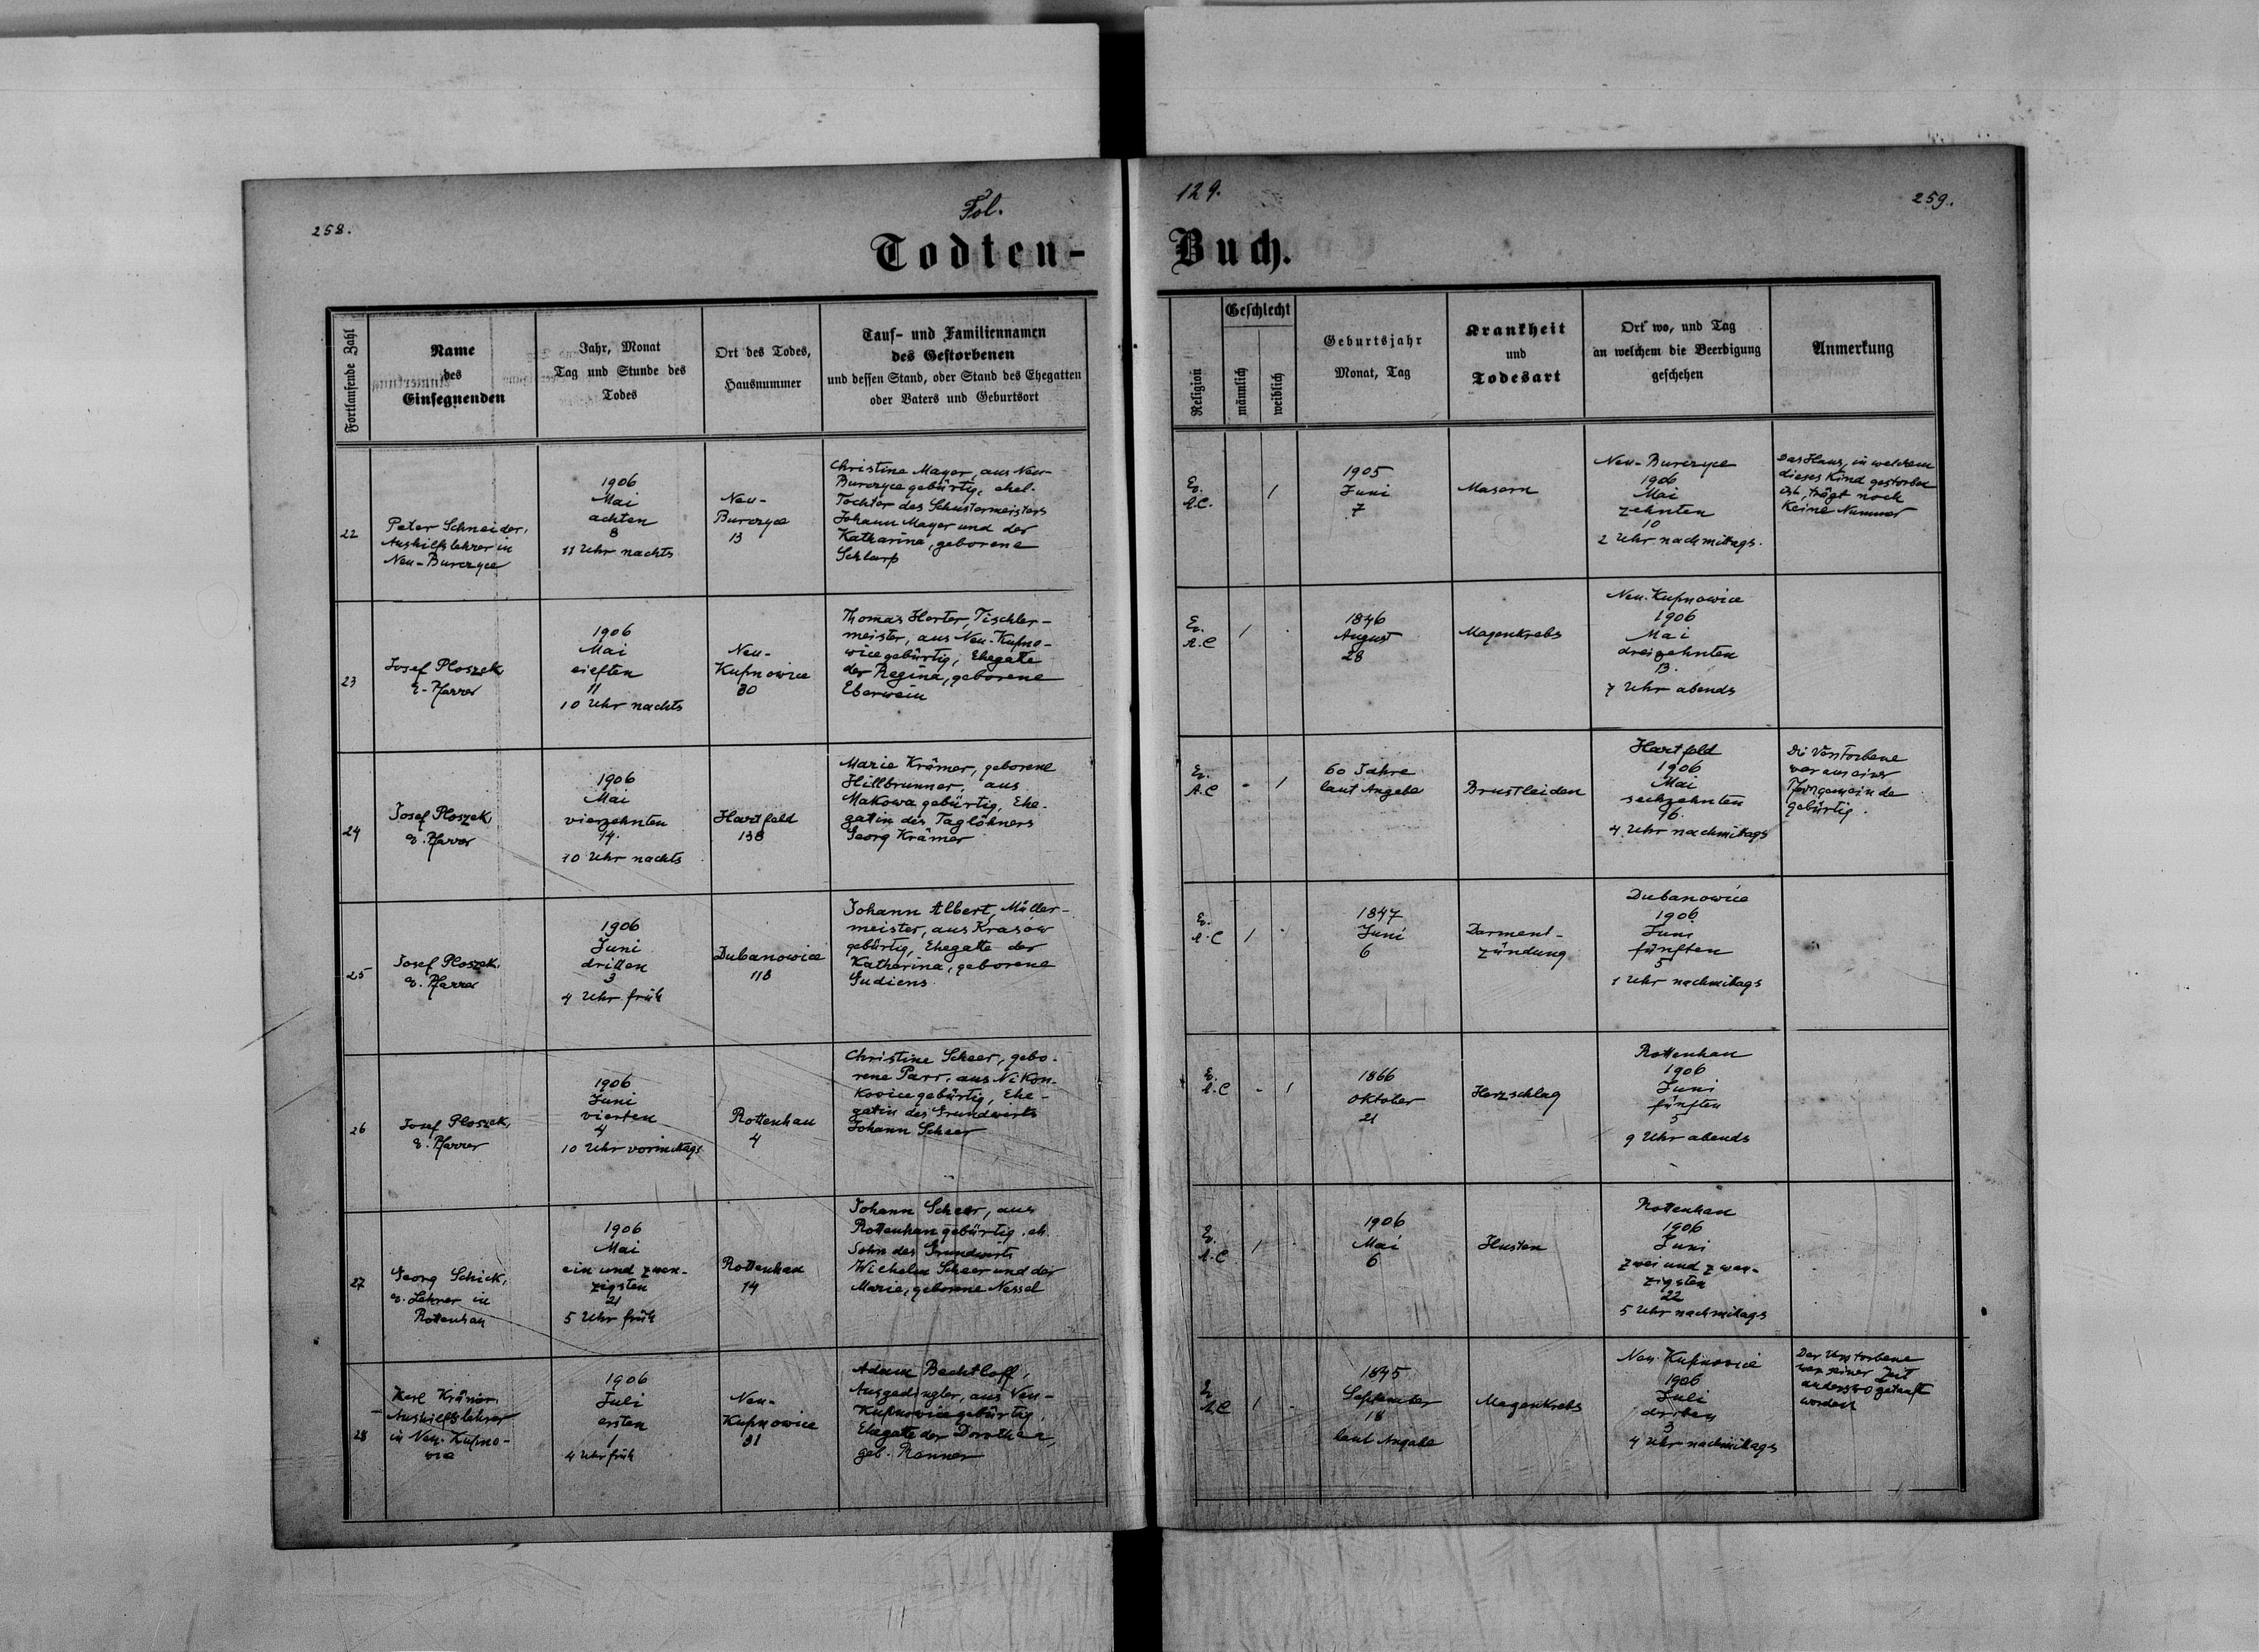 258.
Fol.
129.
259.
Todten-
Buch.
Fortlaufende Zahl
Name
des
Einsegnenden
Jahr, Monat
Tag und Stunde des
Todes
Ort des Todes,
Hausnummer
Tauf- und Familiennamen
des Gestorbenen
und dessen Stand, oder Stand des Ehegatten
oder Vaters und Geburtsort
Religion
Geschlecht
männlich
weiblich
Geburtsjahr
Monat, Tag
Krankheit
und
Todesart
Ort wo, und Tag
an welchem die Beerdigung
geschehen
Anmerkung
22
Peter Schneider,
Aushilfslehrer in
Neu-Burczyce
1906
Mai
achten
8
11 Uhr nachts
Neu-
Burczyce
13
Christine Mayer, aus Neu-
Burczyce gebürtig, ehel.
Tochter des Schustermeisters
Johann Mayer und der
Katharina, geborene
Schlarp
Ev.
A.C.
1
1905
Juni
7
Masern
Neu-Burczyce
1906
Mai
zehnten
10
2 Uhr nachmittags.
Das Haus, in welchem
dieses Kind gestorben
ist, trägt noch
keine Nummer
23
Josef Ploszek
e. Pfarrer
1906
Mai
elften
11
10 Uhr nachts
Neu-
Kupnowice
30
Thomas Horter, Tischler-
meister, aus Neu-Kupno-
wice gebürtig, Ehegatte
der Regina, geborene
Eberwein
Ev.
A.C
1
1846
August
28
Magenkrebs
Neu-Kupnowice
1906
Mai
dreizehnten
13.
7 Uhr abends
24
Josef Ploszek
e. Pfarrer
1906
Mai
vierzehnten
14.
10 Uhr nachts
Hartfeld
138
Marie Krämer, geborene
Hillbrunner, aus
Makowa gebürtig, Ehe-
gatin des Taglöhners
Georg Krämer
Ev.
A.C
- 1
60 Jahre
laut Angabe
Brustleiden
Hartfeld
1906
Mai
sechzehnten
16.
4 Uhr nachmittags
Die Verstorbene
war aus einer
gebürtig.
25
Josef Ploszek,
e. Pfarrer
1906
Juni
dritten
3
4 Uhr früh
Dubanowice
118
Johann Albert, Müller-
meister, aus Krasów
gebürtig, Ehegatte der
Katharina, geborene
Gudiens
Ev.
A.C
1
1847
Juni
6
Darment-
zündung
Dubanowice
1906
Juni
fünften
5
1 Uhr nachmittags
26
Josef Ploszek,
e. Pfarrer
1906
Juni
vierten
4
10 Uhr vormittags
Rottenhan
4
Christine Scheer, gebo-
rene Parr, aus Nikon-
kowice gebürtig, Ehe-
gatin des Grundwirts
Johann Scheer
Ev.
A.C
- 1
1866
Oktober
21
Herzschlag
Rottenhan
1906
Juni
fünften
5
9 Uhr abends
27
Georg Schick,
e. Lehrer in
Rottenhan
1906
Mai
ein und zwan-
zigsten
21
5 Uhr früh
Rottenhan
14
Johann Scheer, aus
Rottenhan gebürtig, eh.
Sohn des Grundwirts
Wilhelm Scheer und der
Marie, geborene Nessel
Ev.
A.C
1
1906
Mai
6
Husten
Rottenhan
1906
Juni
zwei und zwan-
zigsten
22
5 Uhr nachmittags
28
Karl Krämer,
Aushilfslehrer
in Neu-Kupno-
wice
1906
Juli
ersten
1
4 Uhr früh
Neu-
Kupnowice
31
Adam Bechtloff,
Ausgedingler, aus Neu-
Kupnowice gebürtig,
Ehegatte der Dorothea,
geb. Renner
Ev.
A.C
1
1845
September
18
laut Angabe
Magenkrebs
Neu-Kupnowice
1906
Juli
dritten
3
4 Uhr nachmittags
Der Verstorbene
war seiner Zeit
anderswo getauft
worden